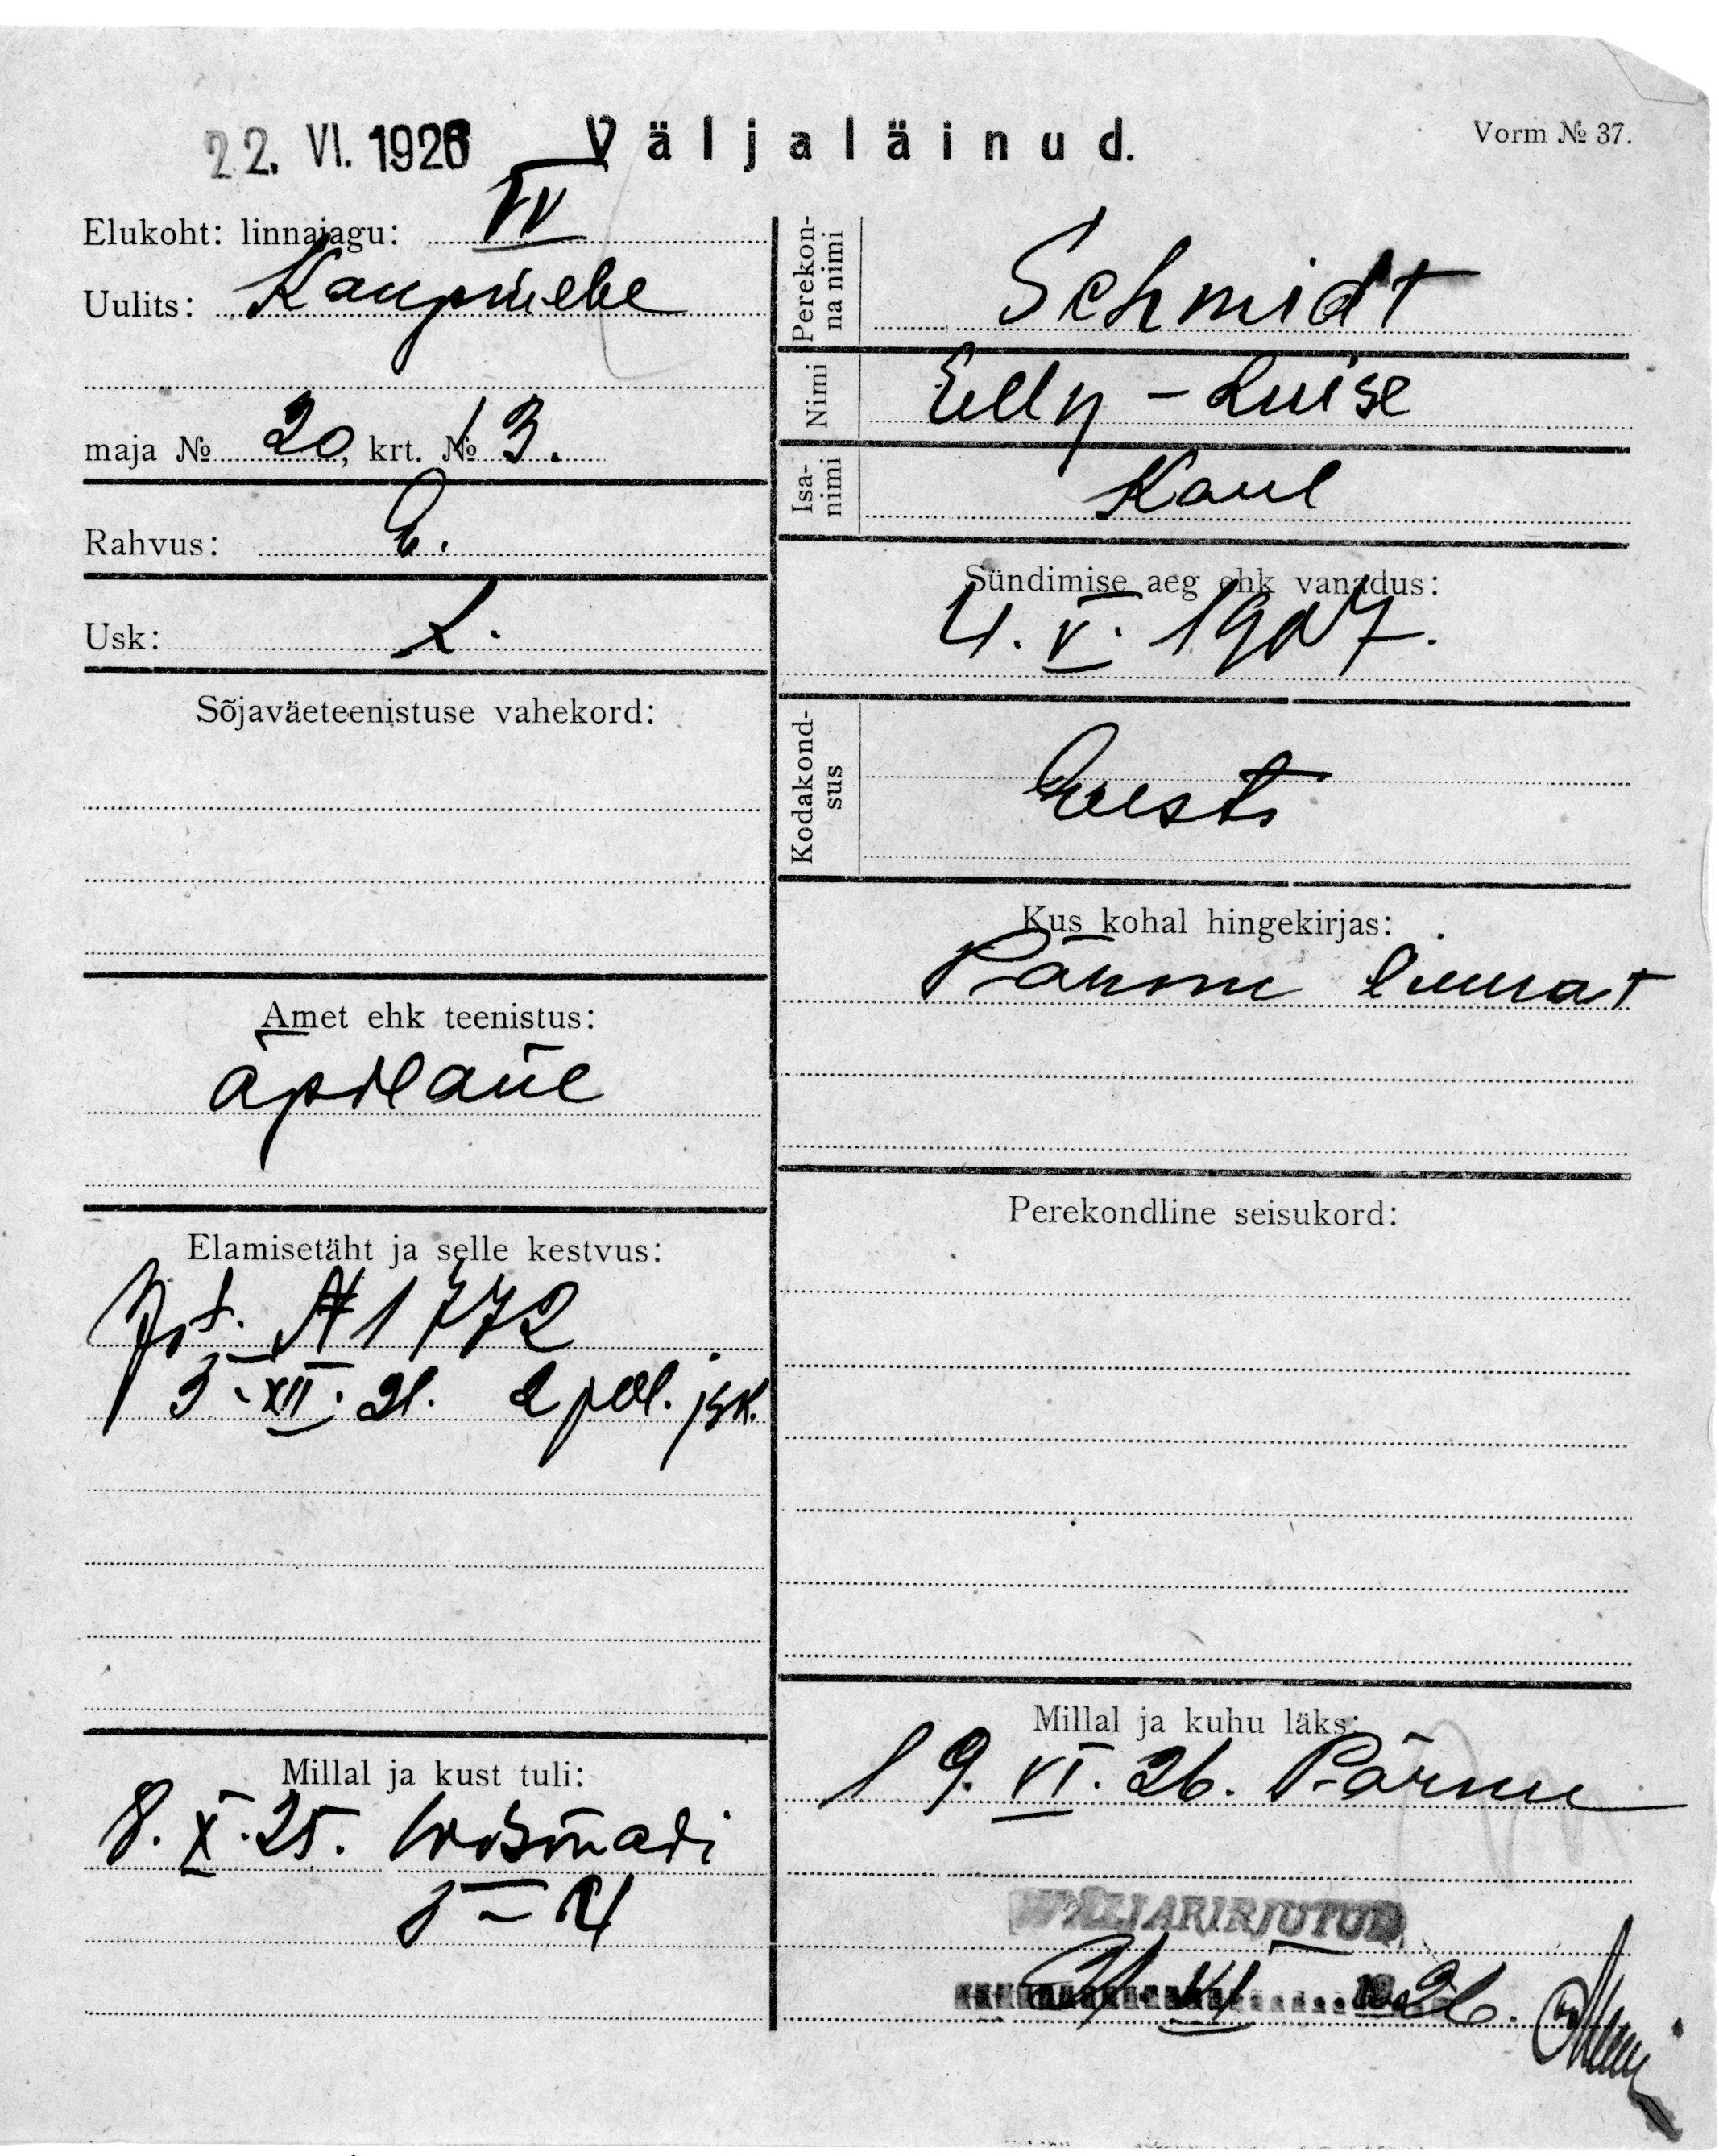 22. VI. 1926
Väljaläinud.
Vorm № 37.
Elukoht: linnajagu: IV
Uulits: Kaupmehe
maja № 20, krt. № 3.
Rahvus: E.
Usk: L.
Sõjaväeteenistuse vahekord:
Amet ehk teenistus:
õpilane
Elamisetäht ja selle kestvus:
№ 1772
XII. 21. 2 pol. jsk.
Millal ja kust tuli:
8. X. 25. Wismari
Perekonna nimi Schmidt
Nimi Elly-Luise
Isanimi Karl
Sündimise aeg ehk vanadus:
4. V. 1907.
Kodakondsus
Eesti
Kus kohal hingekirjas:
Pärnu linnast
Perekondline seisukord:
Millal ja kuhu läks:
19. VI. 26. Pärnu
VÄLJAKIRJUTUD
VI 1926.